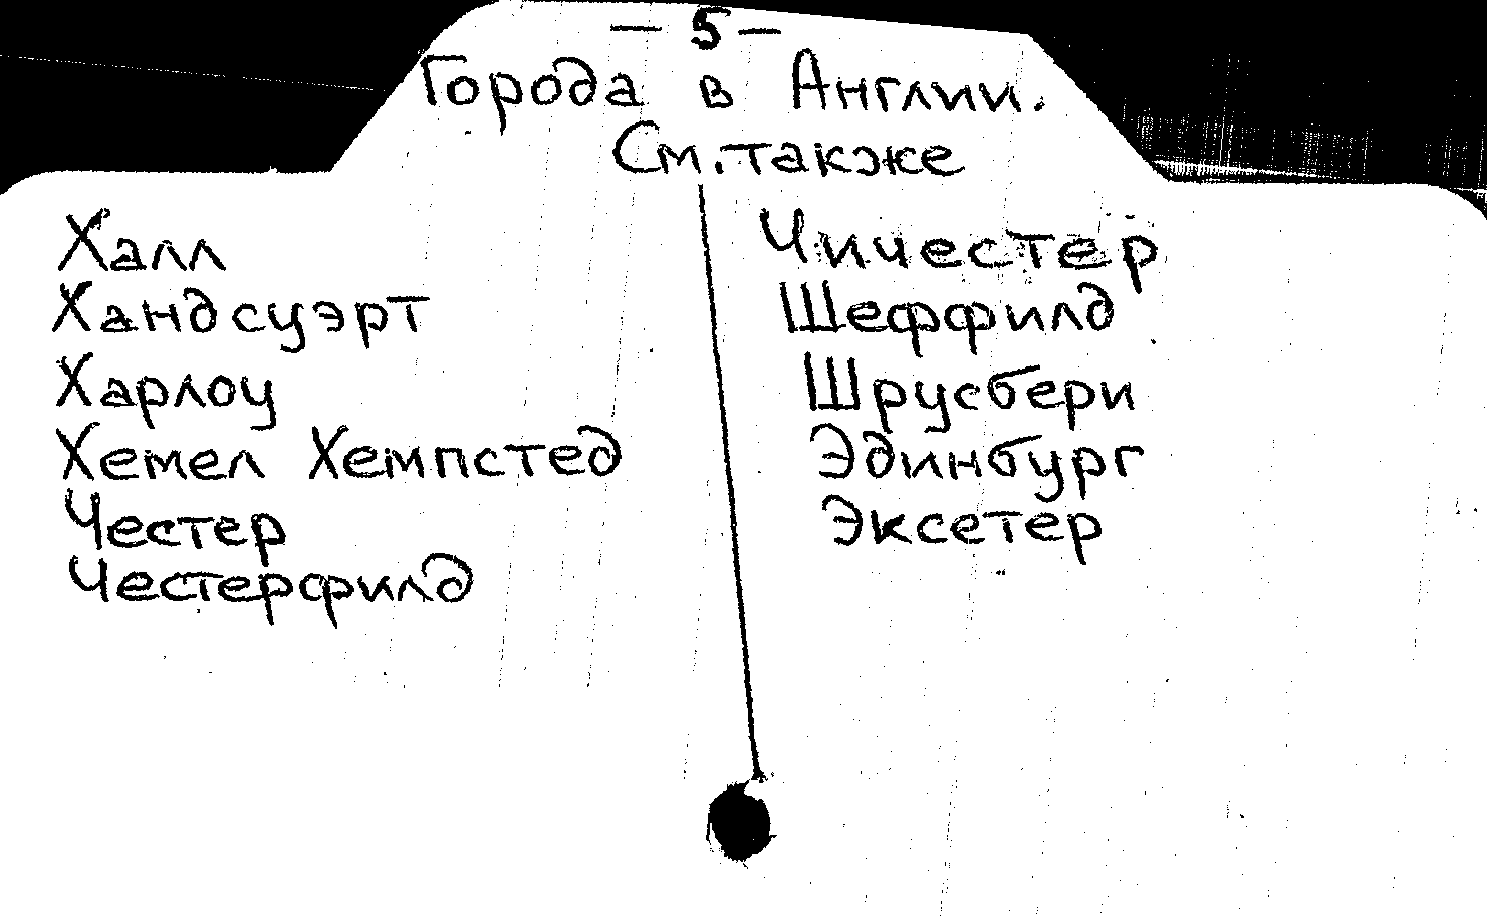 — 5 —
Города в Англии.
См. также
Халл
Хандсуэрт
Харлоу
Хемел Хемпстед
Честер
Честерфилд
Чичестер
Шеффилд
Шрусбери
Эдинбург
Эксетер